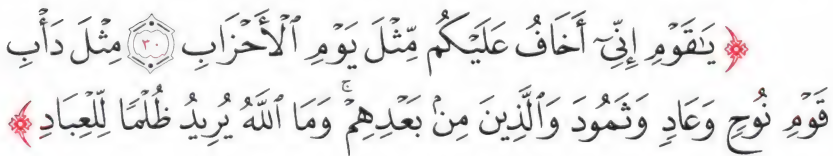 ﴿ يَٰقَوۡمِ إِنِّيٓ أَخَافُ عَلَيۡكُم مِّثۡلَ يَوۡمِ ٱلۡأَحۡزَابِ ٣٠ مِثۡلَ دَأۡبِ
قَوۡمِ نُوحٖ وَعَادٖ وَثَمُودَ وَٱلَّذِينَ مِنۢ بَعۡدِهِمۡۚ وَمَا ٱللَّهُ يُرِيدُ ظُلۡمٗا لِّلۡعِبَادِ ﴾